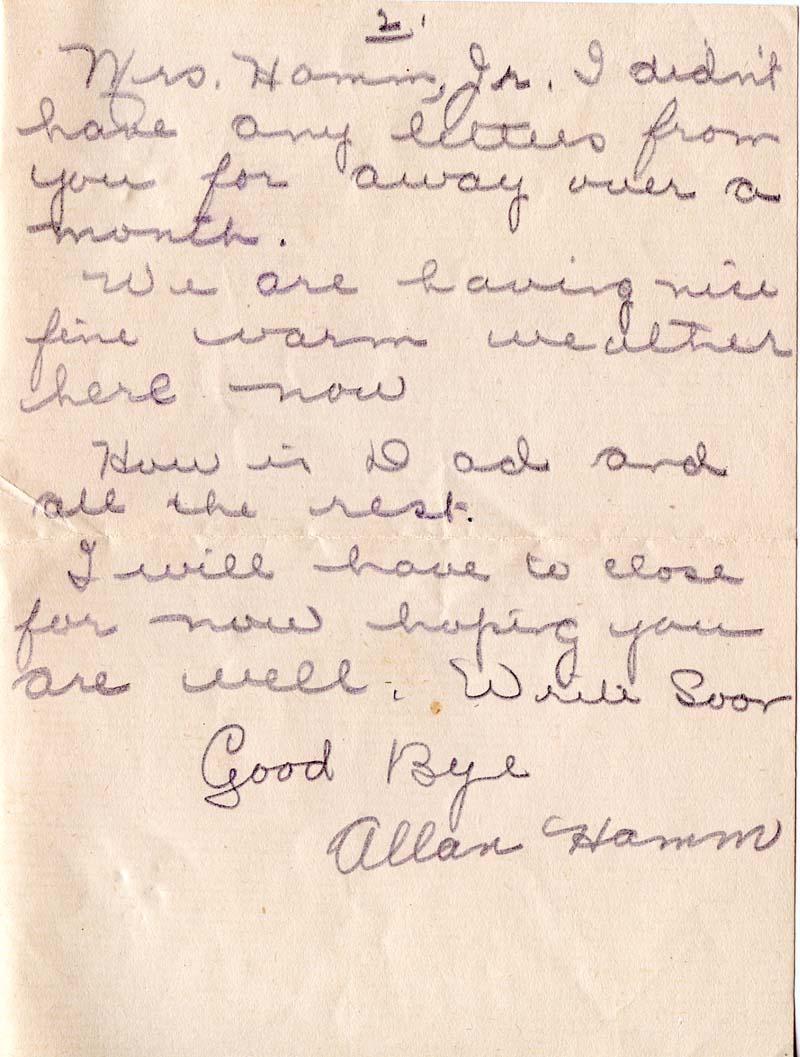 2.
Mrs. Hamm, Jr. I didn't
have any letters from
you for away over a
month.
We are having nice
fine warm weather
here now
How is Dad and
all the rest.
I will have to close
for now hoping you
are well. Write Soon
Good Bye
Allan Hamm